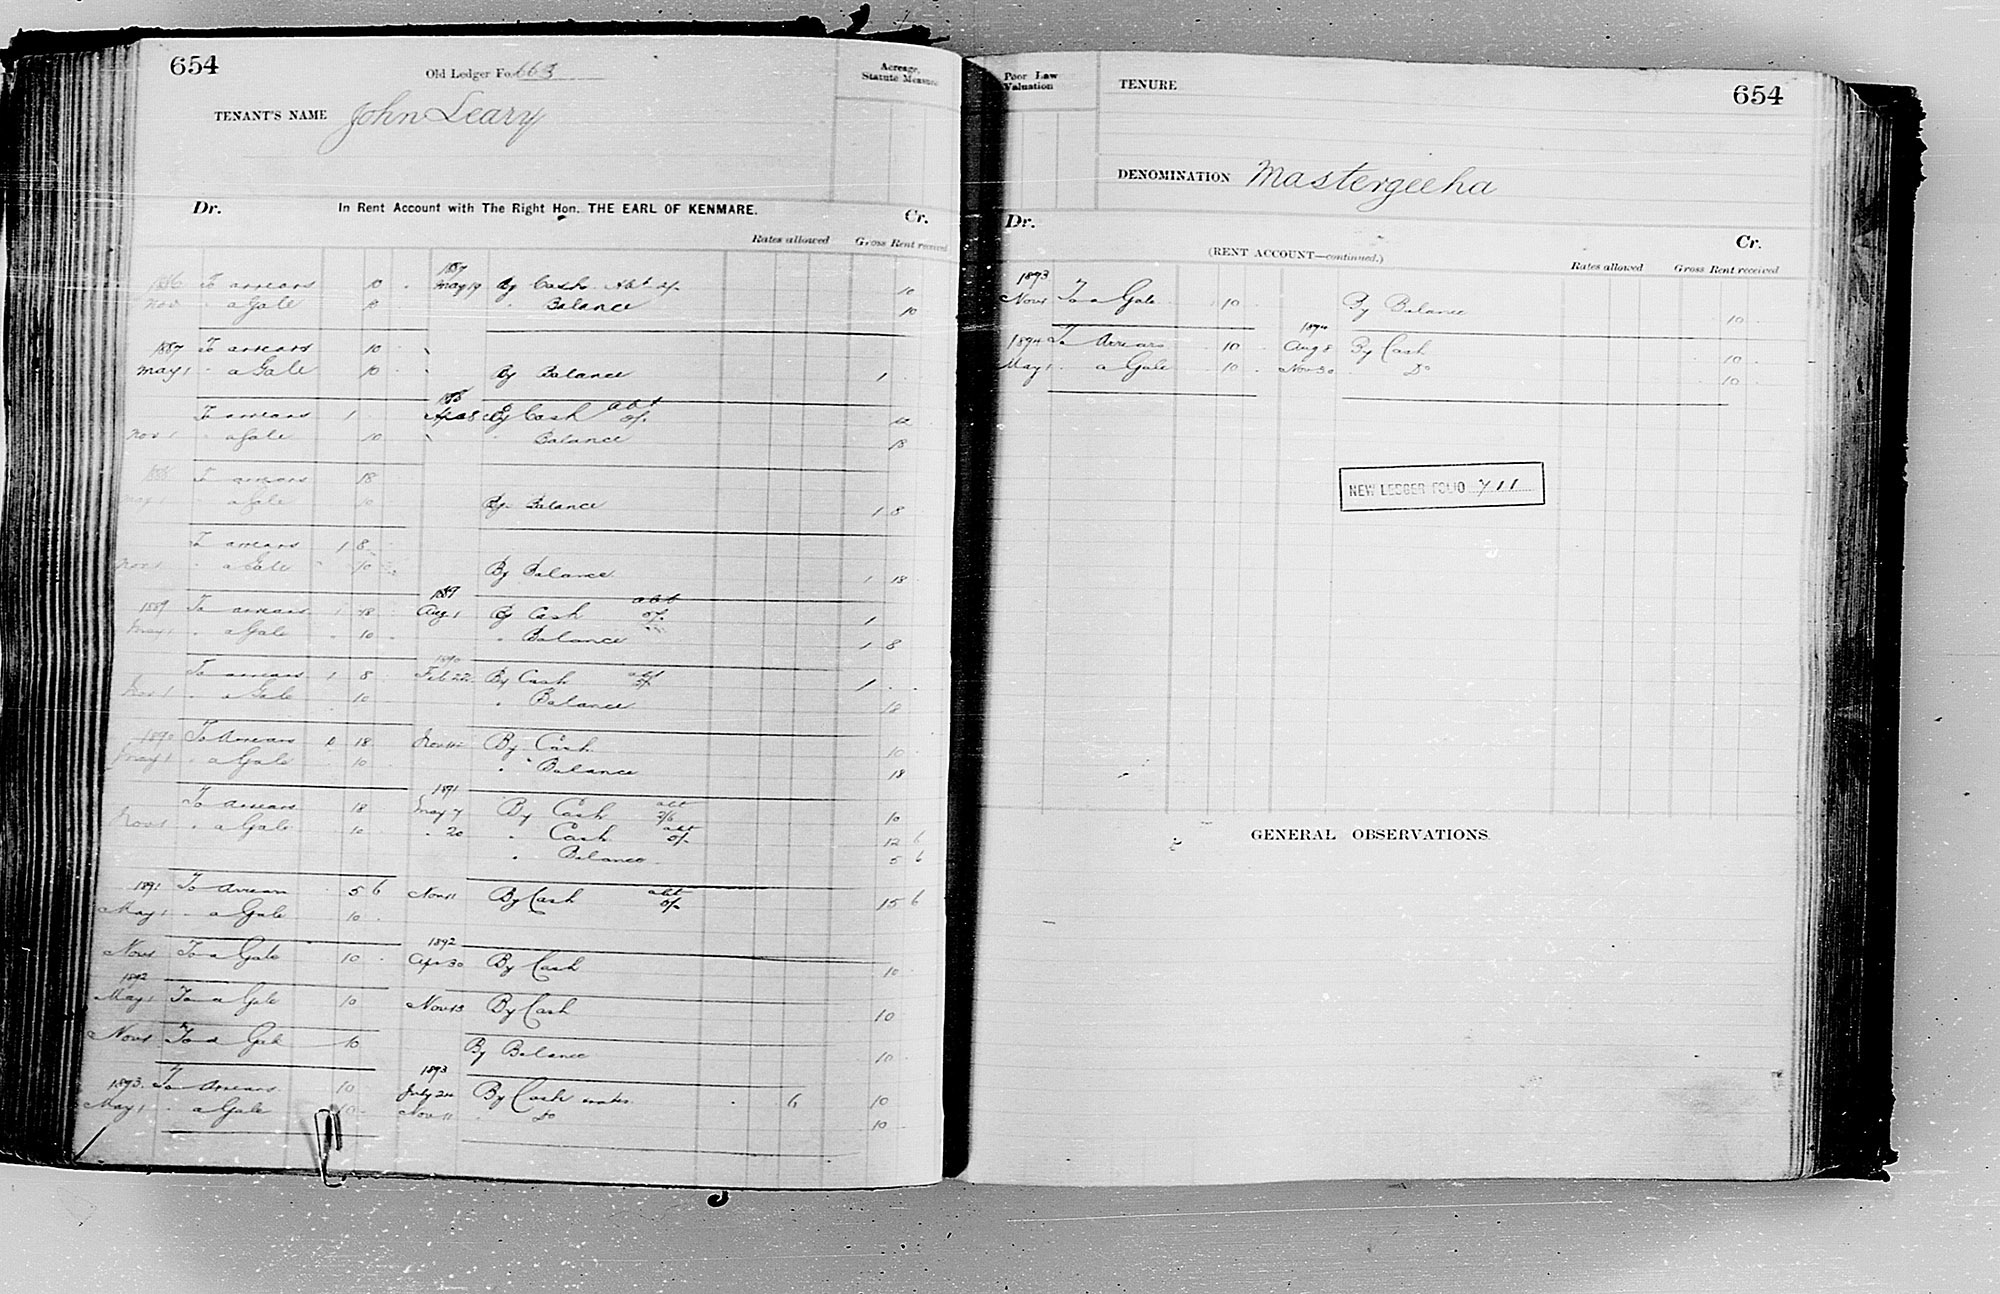 654
Old Ledger Fo. 663
Acreage, Statute Measure
TENANT'S NAME John Leary
Dr. In Rent Account with The Right Hon. THE EARL OF KENMARE. Cr.
Rates allowed Gross Rent received
1887
1886 To arrears 10 May 19 By Cash 10
Nov a Gale 10 " Balance 10
1887 To arrears 10
May 1 " a Gale 10 By Balance 1
To arrears 1 By Cash abt
Nov 1 " a Gale 10 " Balance 18
1888 To arrears 18
May 1 a Gale 10 By Balance 1 8
To arrears 1 8
Nov 1 " a Gale 10 By Balance 1 18
1889
1889 To arrears 1 18 Aug 1 By Cash abt 1
May 1 " a Gale 10 " Balance 1 8
1890
To arrears 1 8 Feb 22 By Cash abt 1
Nov 1 " a Gale 10 " Balance 18
1890 To Arrears 18 By Cash 10
May 1 " a Gale 10 " Balance 18
1891
To Arrears 18 May 7 By Cash abt 2/6 10
Nov 1 " a Gale 10 " 20 " Cash abt 12 6
" Balance 5 6
1891 To Arrears 5 6 Nov 11 By Cash abt 15 6
May 1 " a Gale 10
1892
Nov 1 To a Gale 10 Apr 30 By Cash 10
1892
May 1 To a Gale 10 Nov 13 By Cash 10
Nov 1 To a Gale 10 By Balance 10
1893
1893 To Arrears 10 July 24 By Cash 6 10
May 1 " a Gale 10 Nov 11 " Do 10
Poor Law Valuation
TENURE
654
DENOMINATION Mastergeeha
Dr. (RENT ACCOUNT—continued.) Cr.
Rates allowed Gross Rent received
1893
Nov 1 To a Gale 10 By Balance 10
1894
1894 To Arrears 10 Aug 8 By Cash 10
May 1 " a Gale 10 Nov 30 Do 10
NEW LEDGER FOLIO 711
GENERAL OBSERVATIONS